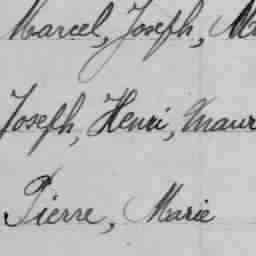 Marcel, Joseph, Ma
Joseph, Henri, Maur
Pierre, Marie